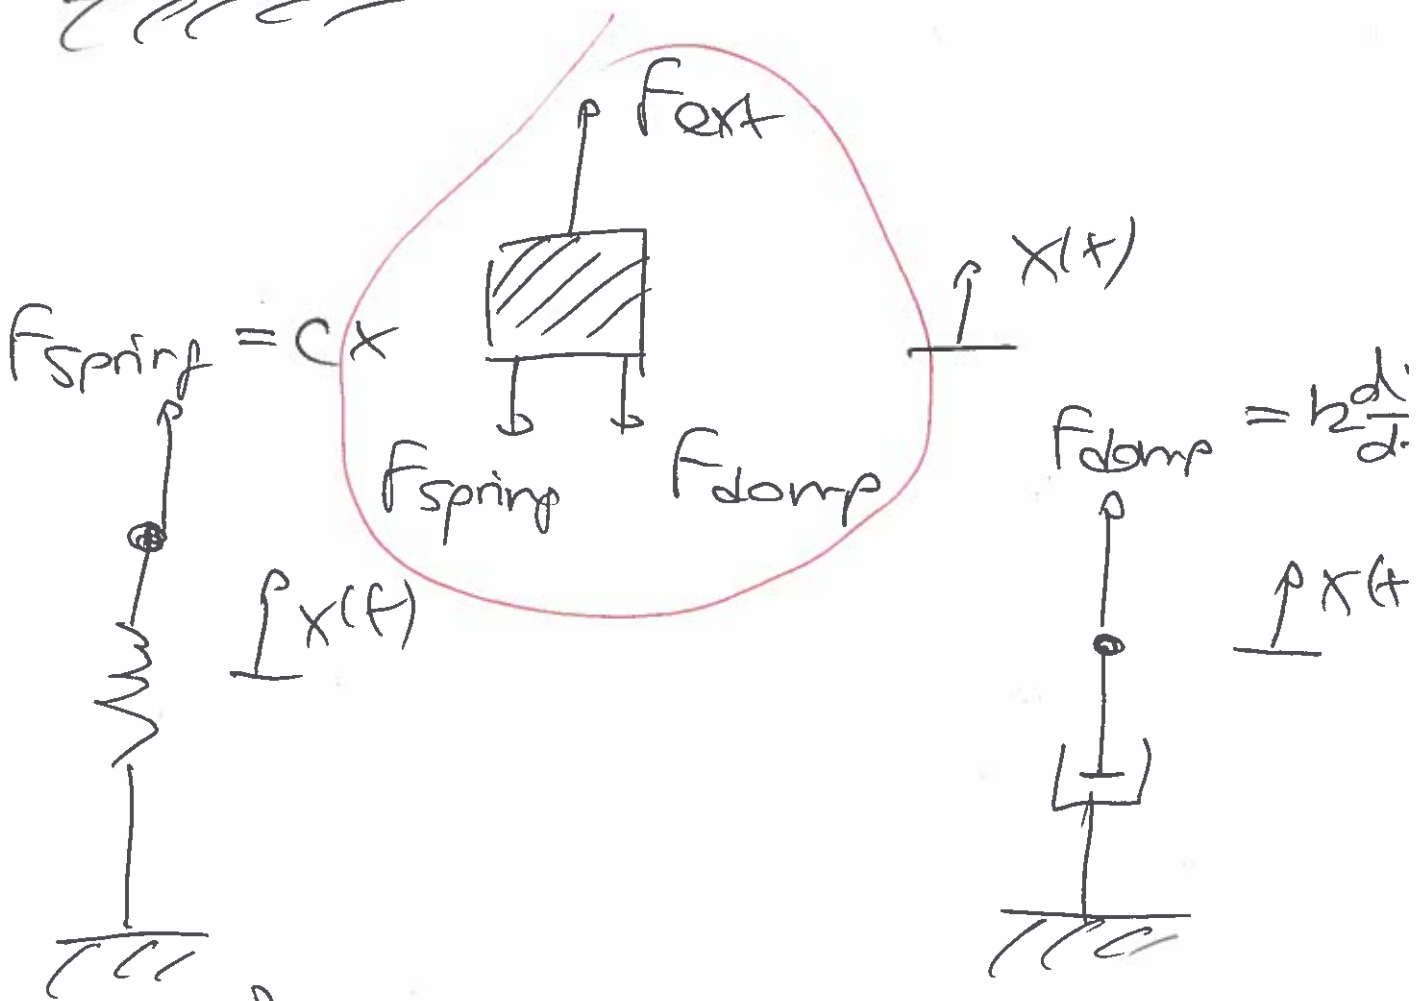 Fext
x(t)
Fspring = cx
Fspring
Fdamp
Fdamp =
x(t)